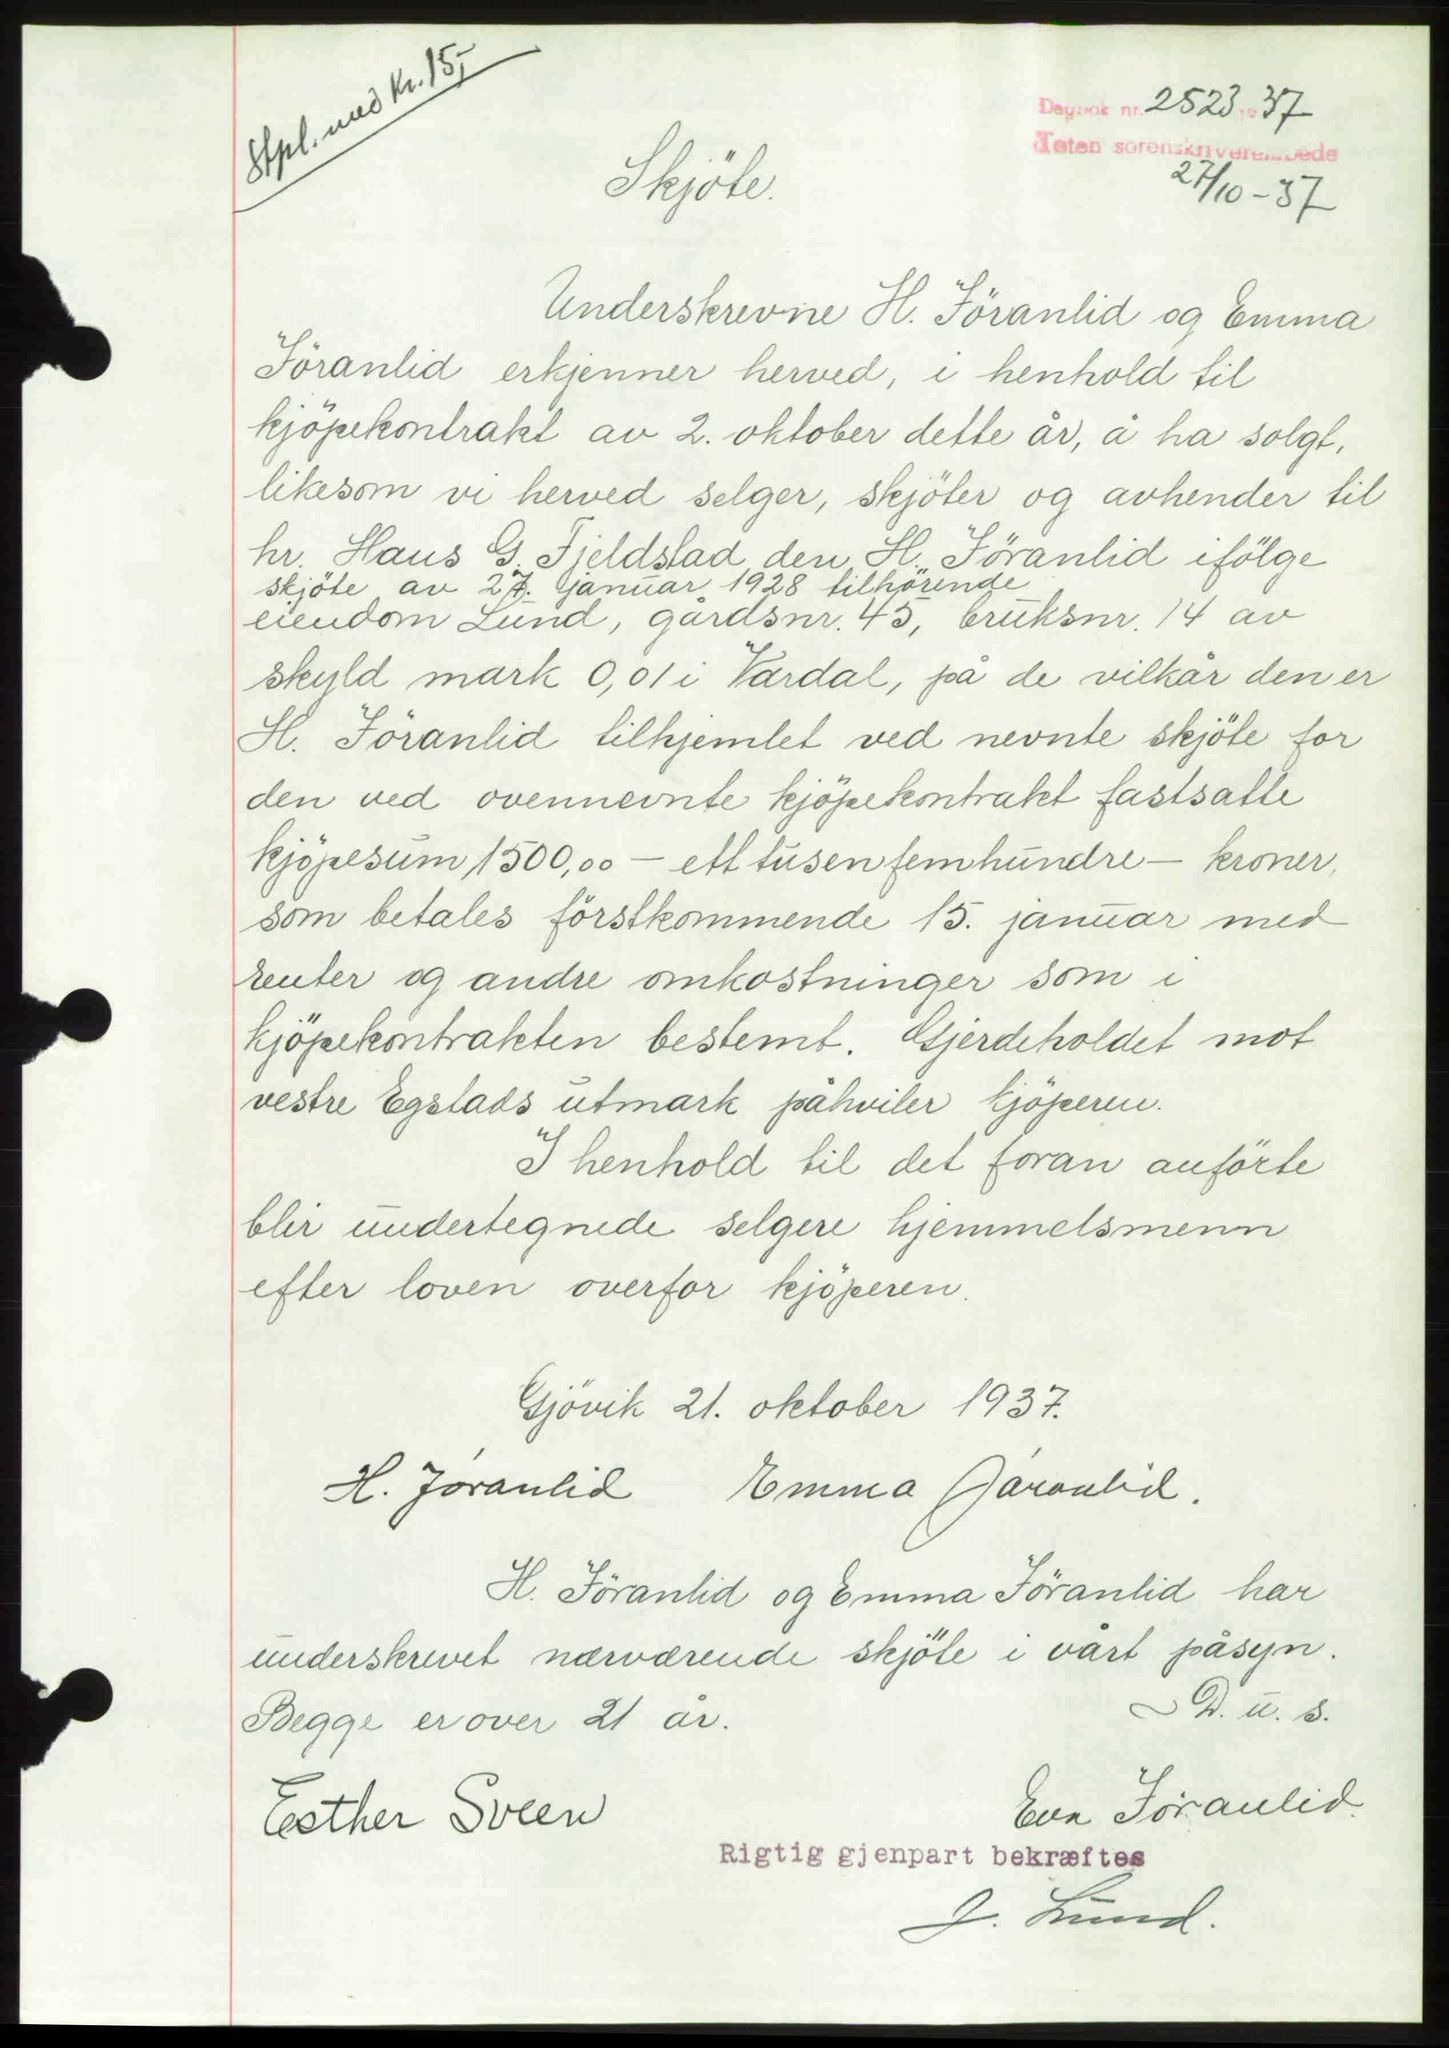 Stpl. med Kr. 15,-
Dagbok nr. 2523 19 37
Toten sorenskriverembede
27/10 - 37
Skjöte.
Underskrevne H. Jöranlid og Emma
Jöranlid erkjenner herved, i henhold til
kjöpekontrakt av 2. oktober dette år, å ha solgt,
likesom vi herved selger, skjöter og avhender til
hr. Hans G. Fjeldstad den H. Jöranlid ifölge
skjöte av 27. januar 1928 tilhörende
eiendom Lund, gårdsnr. 45, bruksnr. 14 av
skyld mark 0,01 i Vardal, på de vilkår den er
H. Jöranlid tilhjemlet ved nevnte skjöte for
den ved ovennevnte kjöpekontrakt fastsatte
kjöpesum, 1500,00 — ett tusen femhundre — kroner,
som betales förstkommende 15. januar med
renter og andre omkostninger som i
kjöpekontrakten bestemt. Gjerdeholdet mot
vestre Egstads utmark påhviler kjöperen.
I henhold til det foran anförte
blir undertegnede selgere hjemmelsmenn
efter loven overfor kjöperen.
Gjövik 21. oktober 1937.
H. Jöranlid Emma Jöranlid.
H. Jöranlid og Emma Jöranlid har
underskrevet nærværende skjöte i vårt påsyn.
Begge er over 21 år. D. u. s.
Esther Sveen Eva Jöranlid.
Rigtig gjenpart bekræftes
J. Lund.